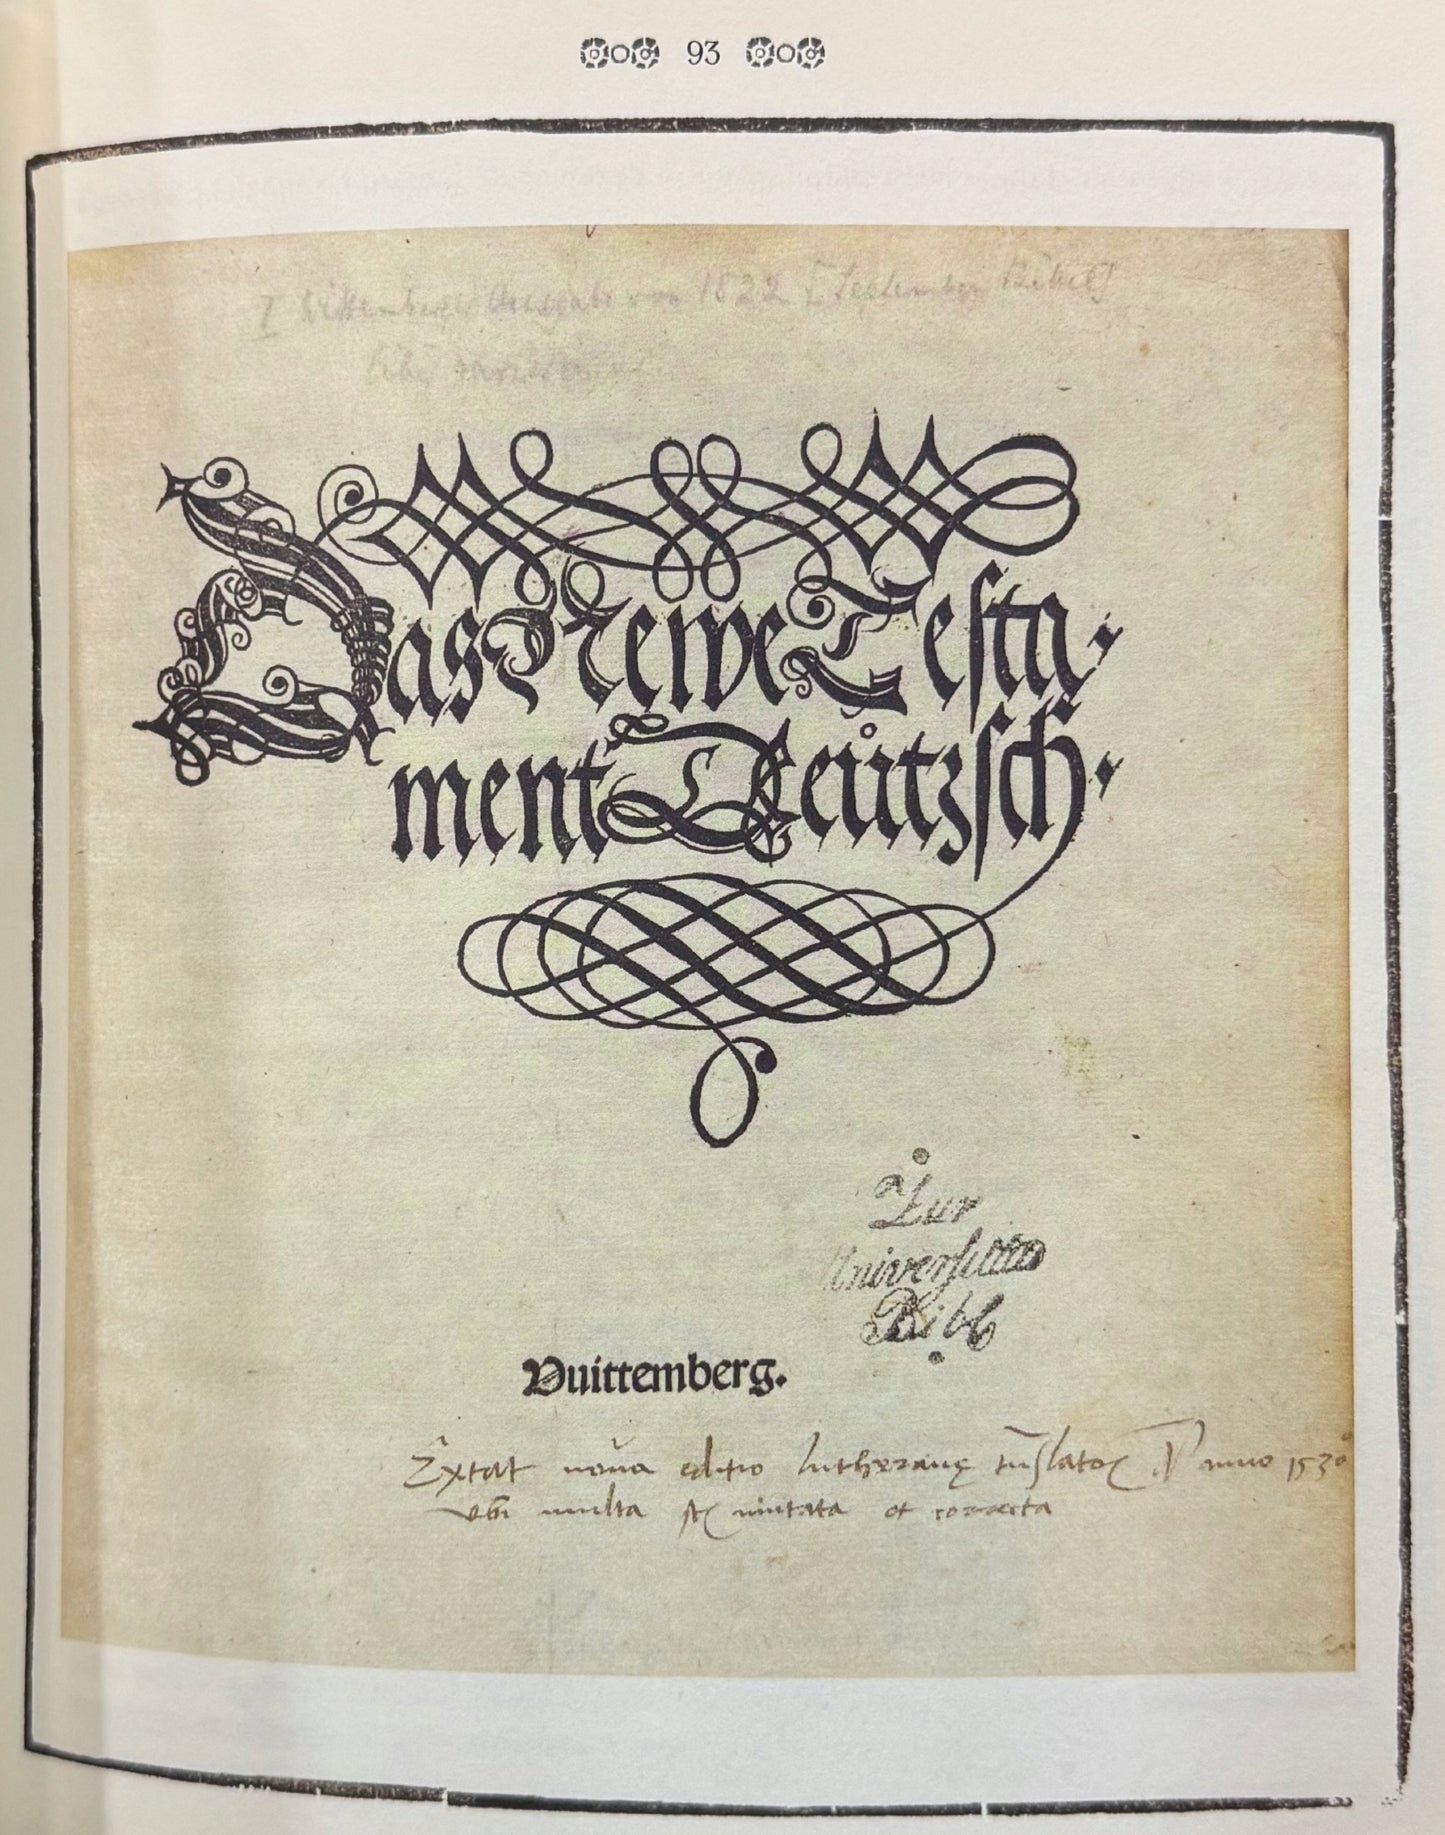 93
I Wittenberger Ausgabe von 1522 [September Bibel]
Das Newe Testa-
ment Deůtzsch.
Zur
Universitäts
Bibl
Vuittemberg.
Extat nova editio lutheranę anno 1530
ubi multa mutata et correcta